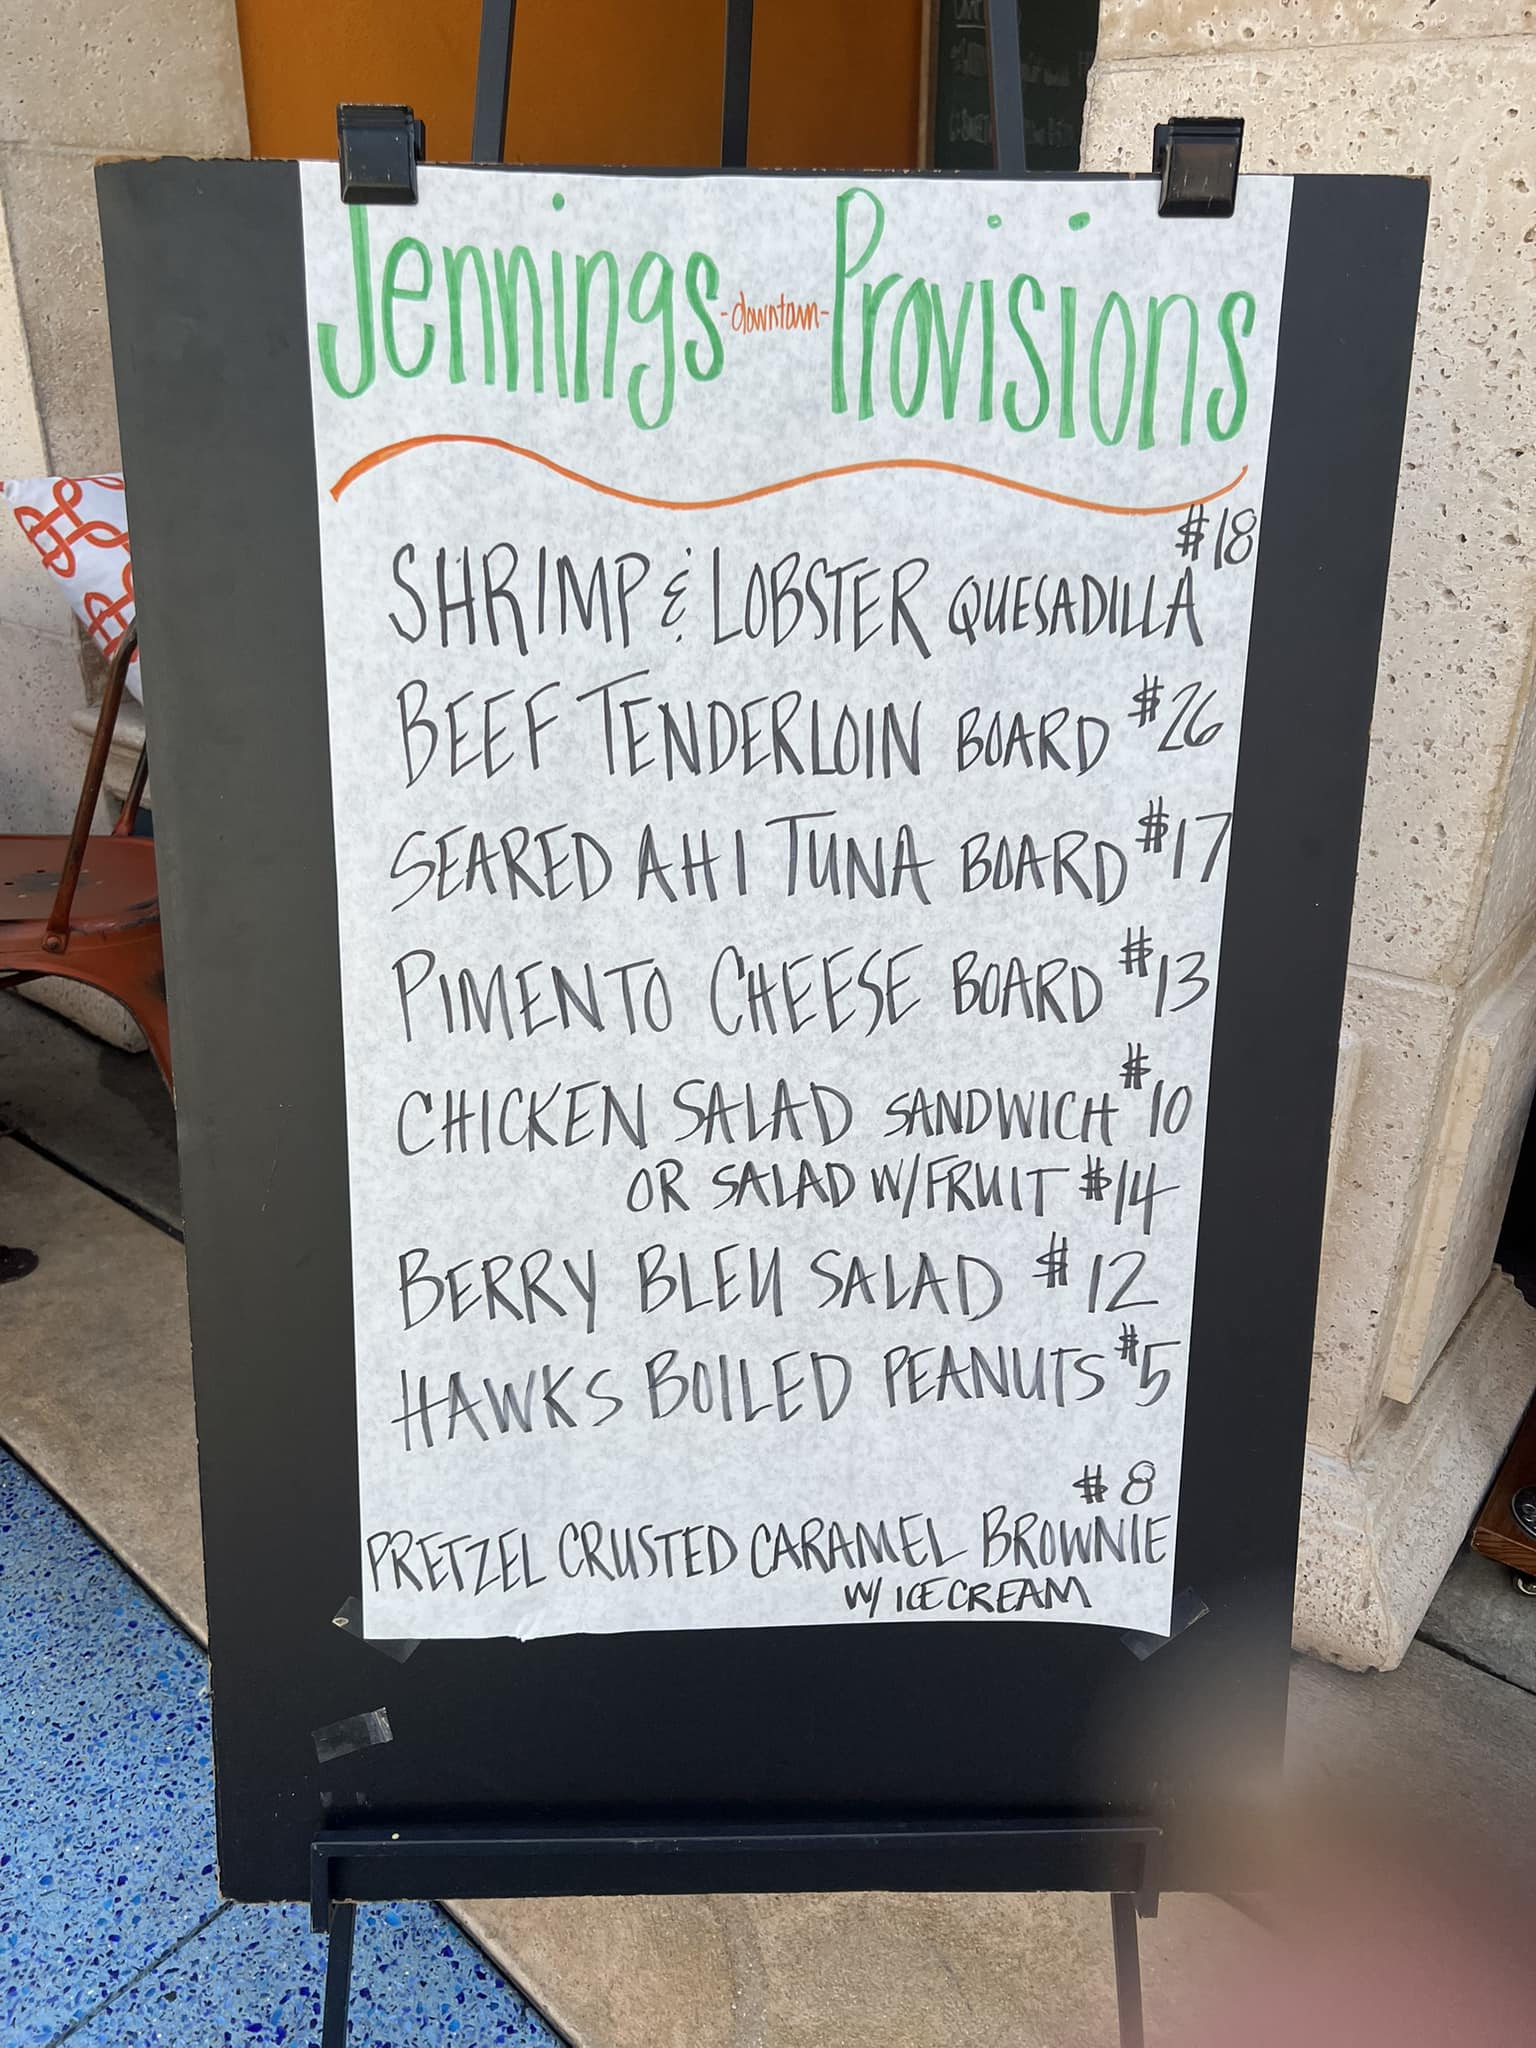 Jennings -downtown- Provisions
SHRIMP & LOBSTER QUESADILLA $18
BEEF TENDERLOIN BOARD $26
SEARED AHI TUNA BOARD $17
PIMENTO CHEESE BOARD $13
CHICKEN SALAD SANDWICH $10
OR SALAD W/FRUIT $14
BERRY BLEU SALAD $12
HAWKS BOILED PEANUTS $5
$8
PRETZEL CRUSTED CARAMEL BROWNIE
W/ ICE CREAM